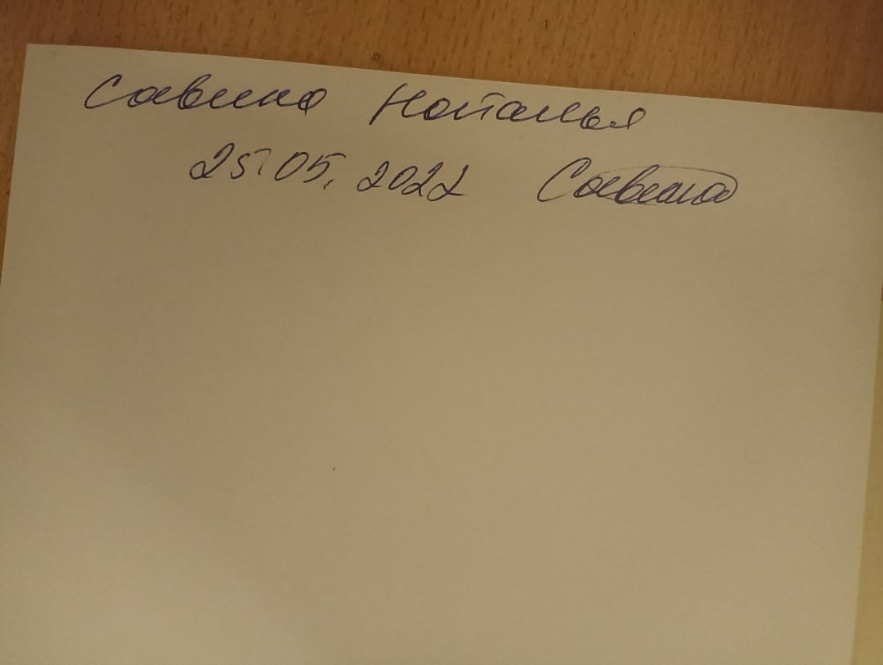 Савина Наталья
25.05.2022 Савина